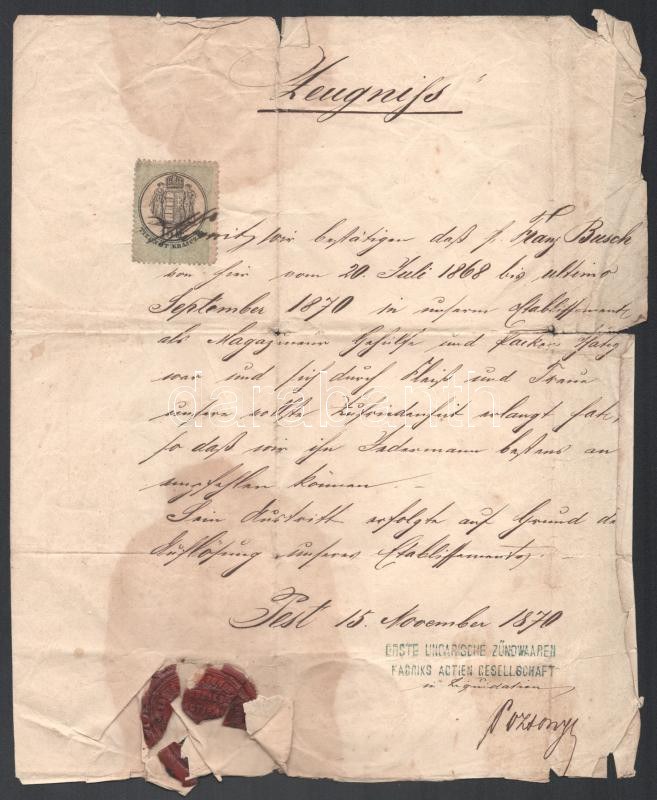 Zeugniss
Womit wir bestätigen daß H. Franz Busch
von hier vom 20. Juli 1868 bis ultimo
September 1870 in unserm Etablissement
als Magazineur Gehülfe und Packer thätig
war und sich durch Fleiß und Treue
unsere vollste Zufriedenheit erlangt hat,
so daß wir ihn Jedermann bestens an
empfehlen können. —
Sein Austritt erfolgte auf Grund de
Auflösung unseres Etablissements. —
Pest 15. November 1870
ERSTE UNGARISCHE ZÜNDWAAREN
FABRIKS ACTIEN GESELLSCHAFT
in Liquidation
darabanth